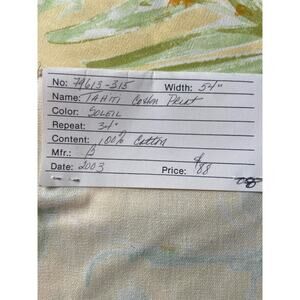 No: 79613-315 Width: 54"
Name: TAHITI Cotton Print
Color: SOLEIL
Repeat: 34"
Content: 100% Cotton
Mfr.: B
Date: 2003 Price: $88